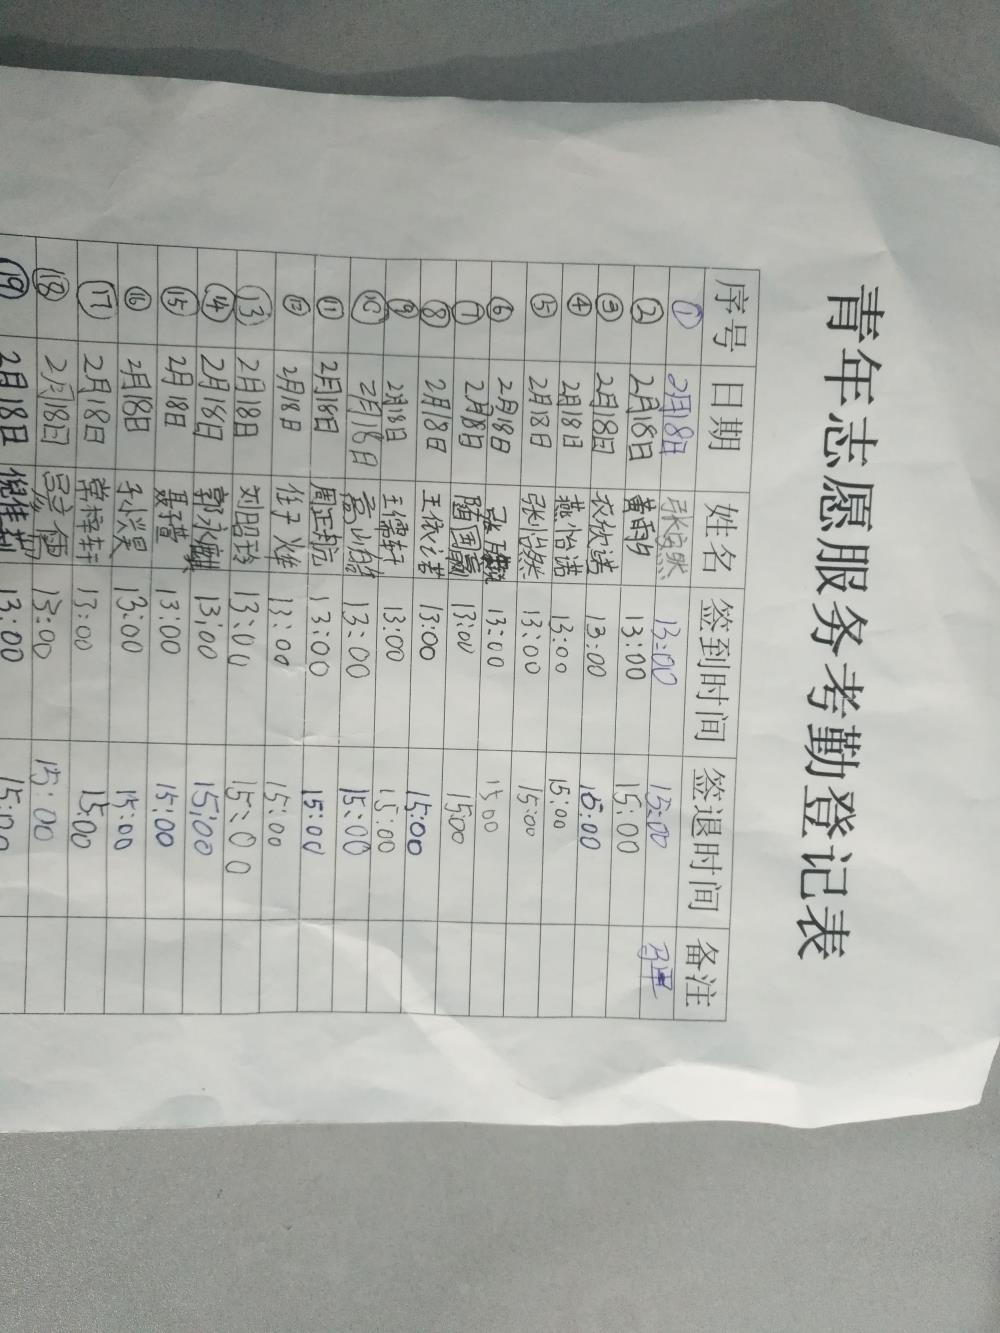 青年志愿服务考勤登记表
序号 日期 姓名 签到时间 签退时间 备注
① 2月18日 张怡然 13:00 15:00
② 2月18日 黄雨 13:00 15:00
③ 2月18日 欣诺 13:00 15:00
④ 2月18日 燕怡诺 13:00 15:00
⑤ 2月18日 张怡然 13:00 15:00
⑥ 2月18日 张 13:00 15:00
⑦ 2月18日 随国赢 13:00 15:00
⑧ 2月18日 王依诺 13:00 15:00
⑨ 2月18日 王儒轩 13:00 15:00
⑩ 2月18日 高 13:00 15:00
⑪ 2月18日 周正航 13:00 15:00
⑫ 2月18日 任子 13:00 15:00
⑬ 2月18日 刘昭玲 13:00 15:00
⑭ 2月18日 郭永麒 13:00 15:00
⑮ 2月18日 聂子萱 13:00 15:00
⑯ 2月18日 昊 13:00 15:00
⑰ 2月18日 常梓轩 13:00 15:00
⑱ 2月18日 13:00 15:00
⑲ 2月18日 倪佳 13:00 15:00